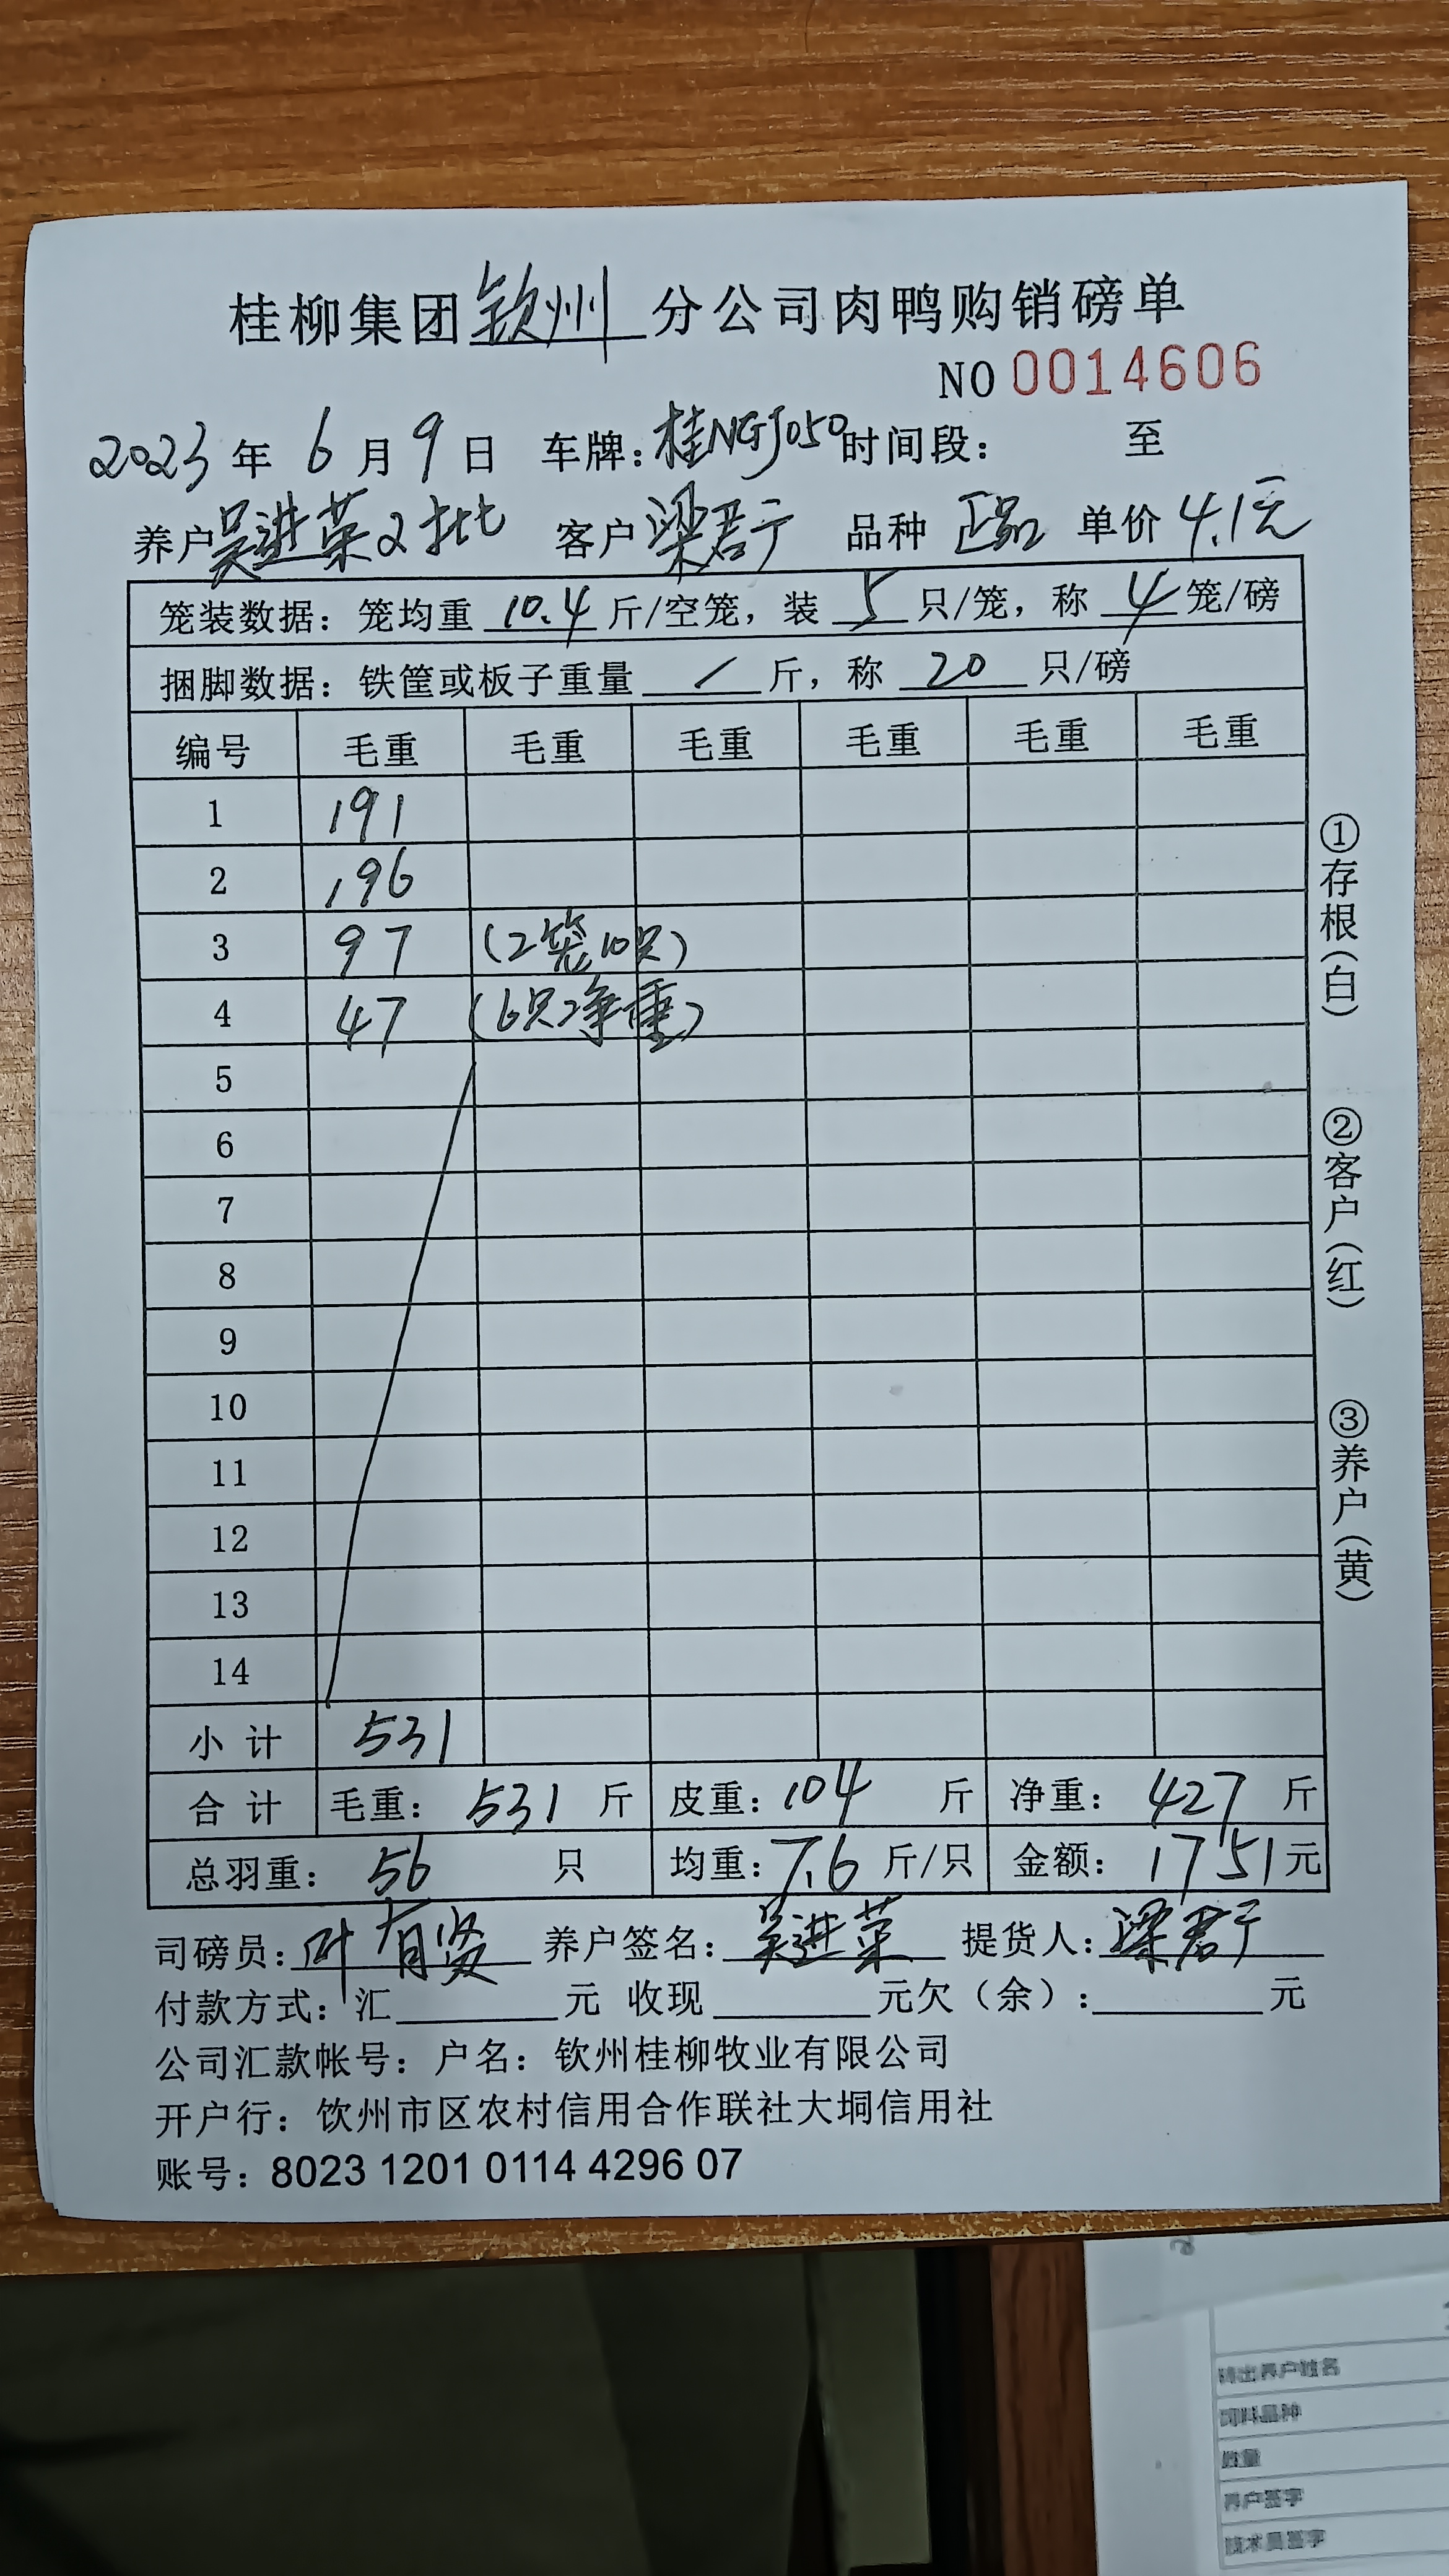 桂柳集团钦州分公司肉鸭购销磅单
NO 0014606
2023年 6月 9日 车牌：桂NGJ050 时间段： 至
养户吴进荣2批 客户梁君宁 品种 正品 单价 4.1元
笼装数据：笼均重 10.4 斤/空笼，装 5 只/笼，称 4 笼/磅
捆脚数据：铁筐或板子重量 / 斤，称 20 只/磅
编号 毛重 毛重 毛重 毛重 毛重 毛重
1 191
2 196
3 97 (2笼10只)
4 47 (6只净重)
5
6
7
8
9
10
11
12
13
14
小 计 531
合 计 毛重： 531 斤 皮重：104 斤 净重： 427 斤
总羽重： 56 只 均重：7.6 斤/只 金额： 1751元
司磅员：叶有贤 养户签名：吴进荣 提货人：梁君宁
付款方式：汇 元 收现 元欠（余）： 元
公司汇款帐号：户名：钦州桂柳牧业有限公司
开户行：饮州市区农村信用合作联社大垌信用社
账号：8023 1201 0114 4296 07
①存根（白）
②客户（红）
③养户（黄）
转出养户姓名
饲料品种
数量
养户签字
技术员签字